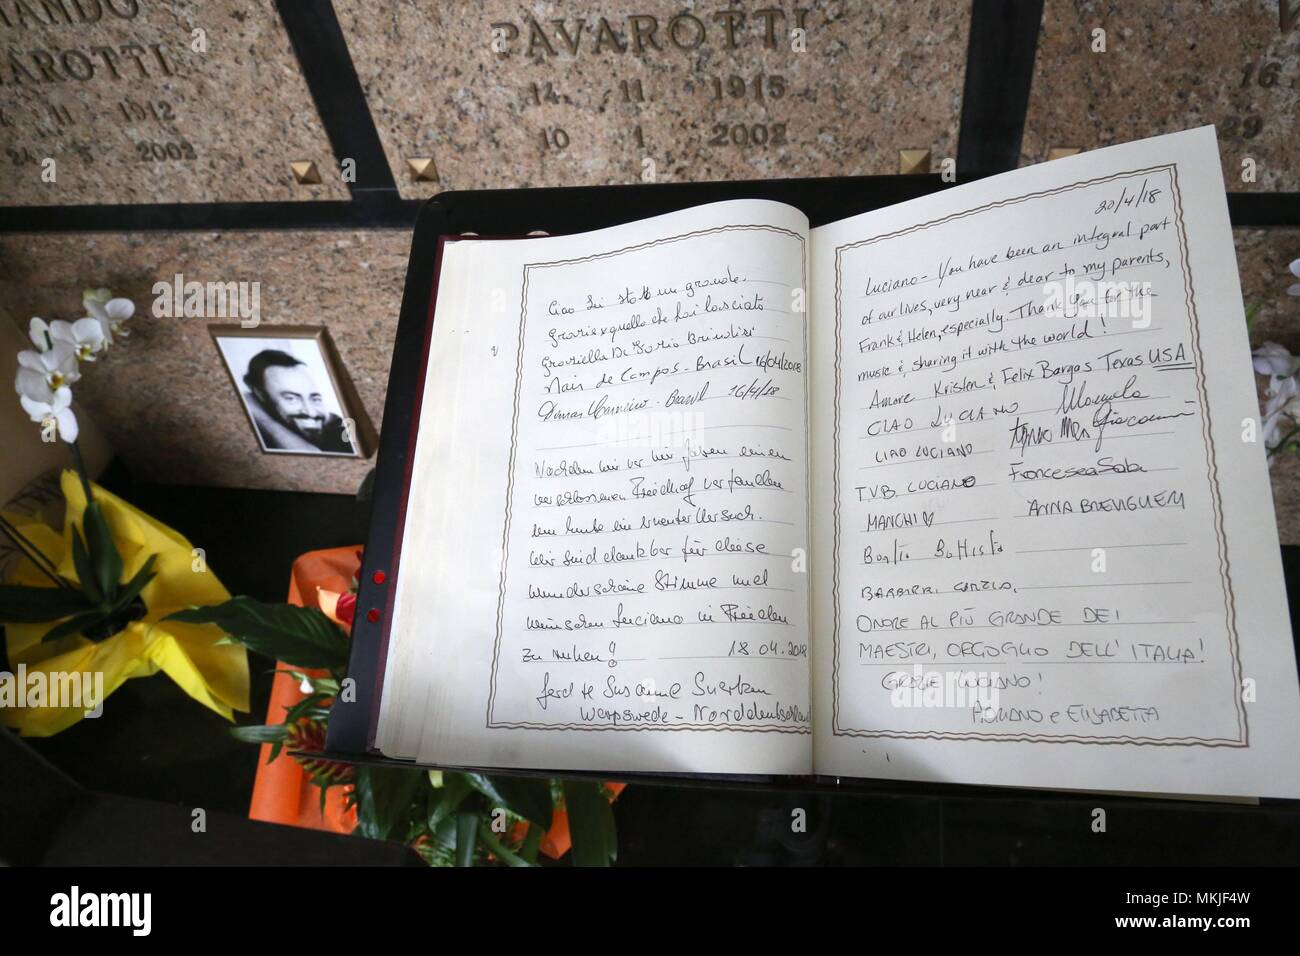 NANDO
PAVAROTTI
PAVAROTTI
11 1912
14 11 1915
16
2002
10 1 2002
29
Ciao sei stato un grande.
Grazie x quello che hai lasciato
Graziella Di Brindisi
Nair de Campos - Brasil 16/04/2018
Brasil 16/4/18
Nachdem wir vor Jahren einen
verschlossenen Friedhof vorfanden
nun heute ein erneuter Versuch.
Wir sind dankbar für diese
wunderschöne Stimme und
wünschen Luciano in Frieden
zu ruhen! 18.04.2018
Susanne
Worpswede - Norddeutschland
20/4/18
Luciano - You have been an integral part
of our lives, very near & dear to my parents,
Frank & Helen, especially. Thank you for the
music & sharing it with the world!
Amore Kristen & Felix Bargas Texas USA
CIAO LUCIANO Manuela
CIAO LUCIANO
TVB LUCIANO Francesca
MANCHI ANNA
Battista
BARBIERI
ONORE AL PIÙ GRANDE DEI
MAESTRI, ORGOGLIO DELL'ITALIA!
GRAZIE LUCIANO!
ROMANO e ELISABETTA
alamy
Image ID: MKJF4W
www.alamy.com